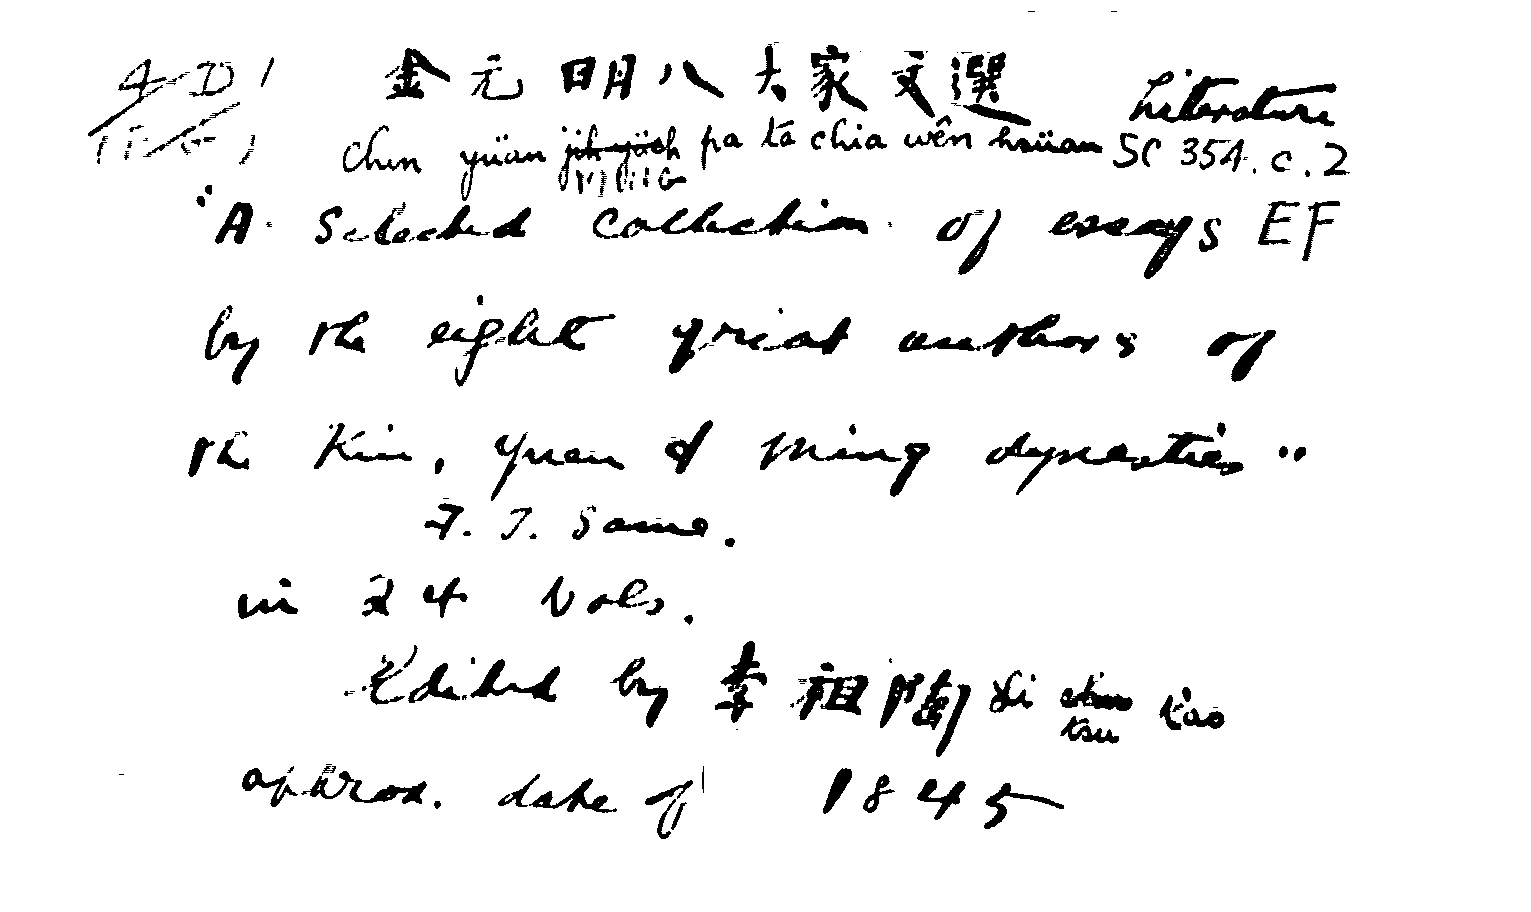 4-D /
金元明八大家文選 Literature
chin yüan jih yüeh pa ta chia wên hsüan SC 354. c. 2
MING
"A Selected Collection of essays EF
by the eight great authors of
the Kin, Yuan & Ming dynasties"
F. T. Same.
in 24 Vols.
Edited by 李祖陶 Li chao t'ao
tsu
approx. date of 1845